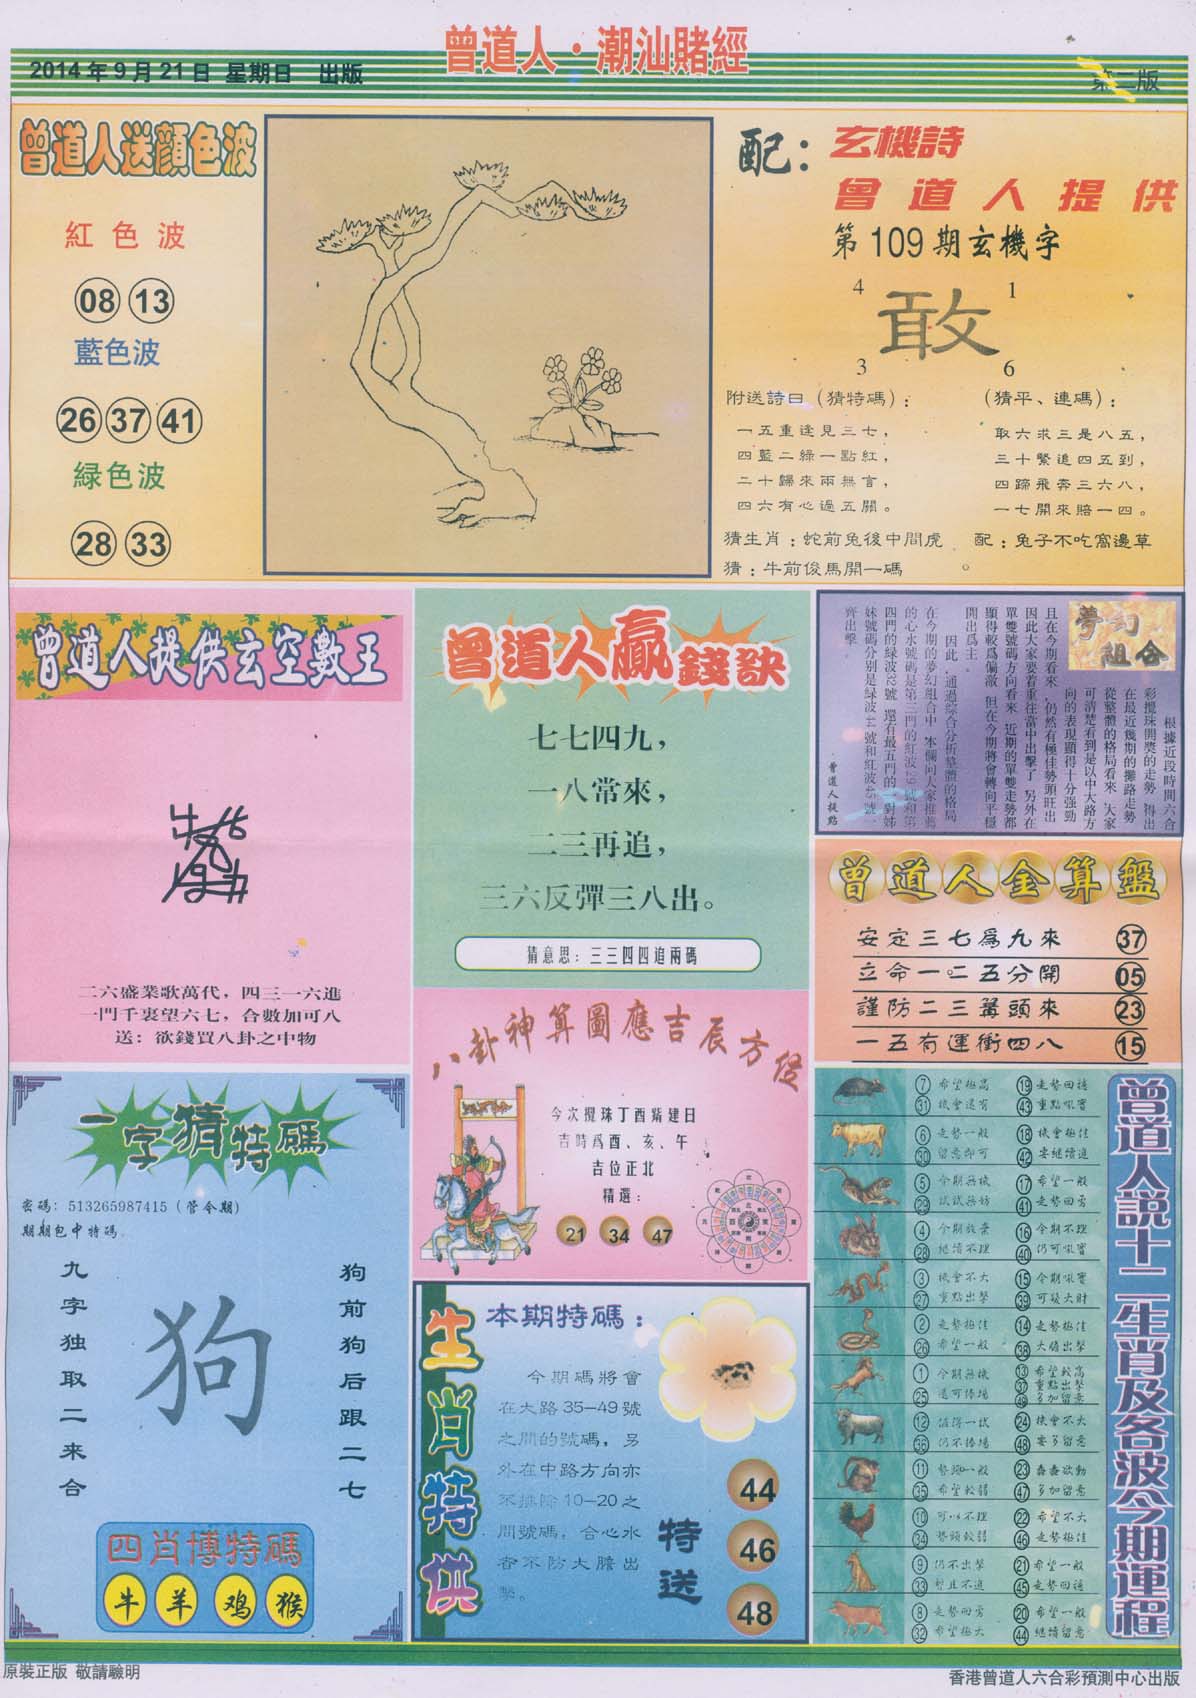 曾道人·潮汕賭經
2014年9月21日 星期日 出版
第二版
曾道人送顏色波
紅色波
08 13
藍色波
26 37 41
緑色波
28 33
配：玄機詩
曾道人提供
第109期玄機字
4 1
敢
3 6
附送詩曰（猜特碼）：
一五重逢見三七，
四藍二綠一點紅，
二十歸來兩無言，
四六有心過五關。
（猜平、連碼）：
取六求三是八五，
三十緊追四五到，
四蹄飛奔三六八，
一七開來賠一四。
猜生肖：蛇前兔後中間虎
配：兔子不吃窩邊草
猜：牛前俊馬開一碼
曾道人提供玄空數王
二六盛業歌萬代，四三一六進
一門千裏望六七，合數加可八
送：欲錢買八卦之中物
曾道人贏錢訣
七七四九，
一八常來，
二三再追，
三六反彈三八出。
猜意思：三三四四追兩碼
夢幻組合
根據近段時間六合
彩攪珠開獎的走勢，得出
在最近幾期的攤路走勢
從整體的格局看來，大家
可清楚看到是以中大路方
向的表現顯得十分强勁
且在今期看來，仍然有極佳勢頭旺出
因此大家要着重往當中出擊了，另外在
單雙號碼方向看來，近期的單雙走勢都
顯得較爲偏激，但在今期將會轉向平穩
開出爲主。
因此，通過綜合分析整體的格局
在今期的夢幻組合中，本欄向大家推薦
的心水號碼是第三門的紅波29號和第
四門的緑波32號，還有最五門的一對姊
妹號碼分別是緑波44號和紅波45號一
齊出擊。
曾道人提點
曾道人金算盤
安定三七爲九來 37
立命一二五分開 05
謹防二三籌頭來 23
一五有運衝四八 15
一字猜特碼
密碼：513265987415（管令期）
期期包中特碼
九字独取二来合
狗
狗前狗后跟二七
四肖博特碼
牛 羊 鸡 猴
八卦神算圖應吉辰方位
今次攪珠丁酉觜建日
吉時爲酉、亥、午
吉位正北
精選：
21 34 47
生肖特供
本期特碼：
今期碼將會
在大路35—49號
之間的號碼，另
外在中路方向亦
不排除10—20之
間號碼，合心水
者不防大膽出
擊。
特送
44
46
48
曾道人説十二生肖及各波今期運程
7 希望極高 19 走勢回穩
31 機會還有 43 重點吼實
6 走勢一般 18 機會極佳
30 留意即可 42 要繼續追
5 今期無機 17 希望一般
29 試試無妨 41 走勢回勇
4 今期放棄 16 今期不理
28 繼續不理 40 仍可吼實
3 機會不大 15 今期吼實
27 重點出擊 39 可發大財
2 走勢極佳 14 走勢極佳
26 希望一般 38 大膽出擊
1 今期無機 13 希望較高
25 還可捧場 37 重點出擊
49 多加留意
12 值得一試 24 機會不大
36 仍不捧場 48 要多留意
11 勢頭一般 23 蠢蠢欲動
35 希望較弱 47 多加留意
10 可以不理 22 希望不大
34 勢頭較弱 46 走勢極佳
9 仍不出擊 21 希望一般
33 暫且不追 45 走勢回穩
8 走勢回勇 20 希望一般
32 希望極大 44 繼續留意
原裝正版 敬請驗明
香港曾道人六合彩預測中心出版